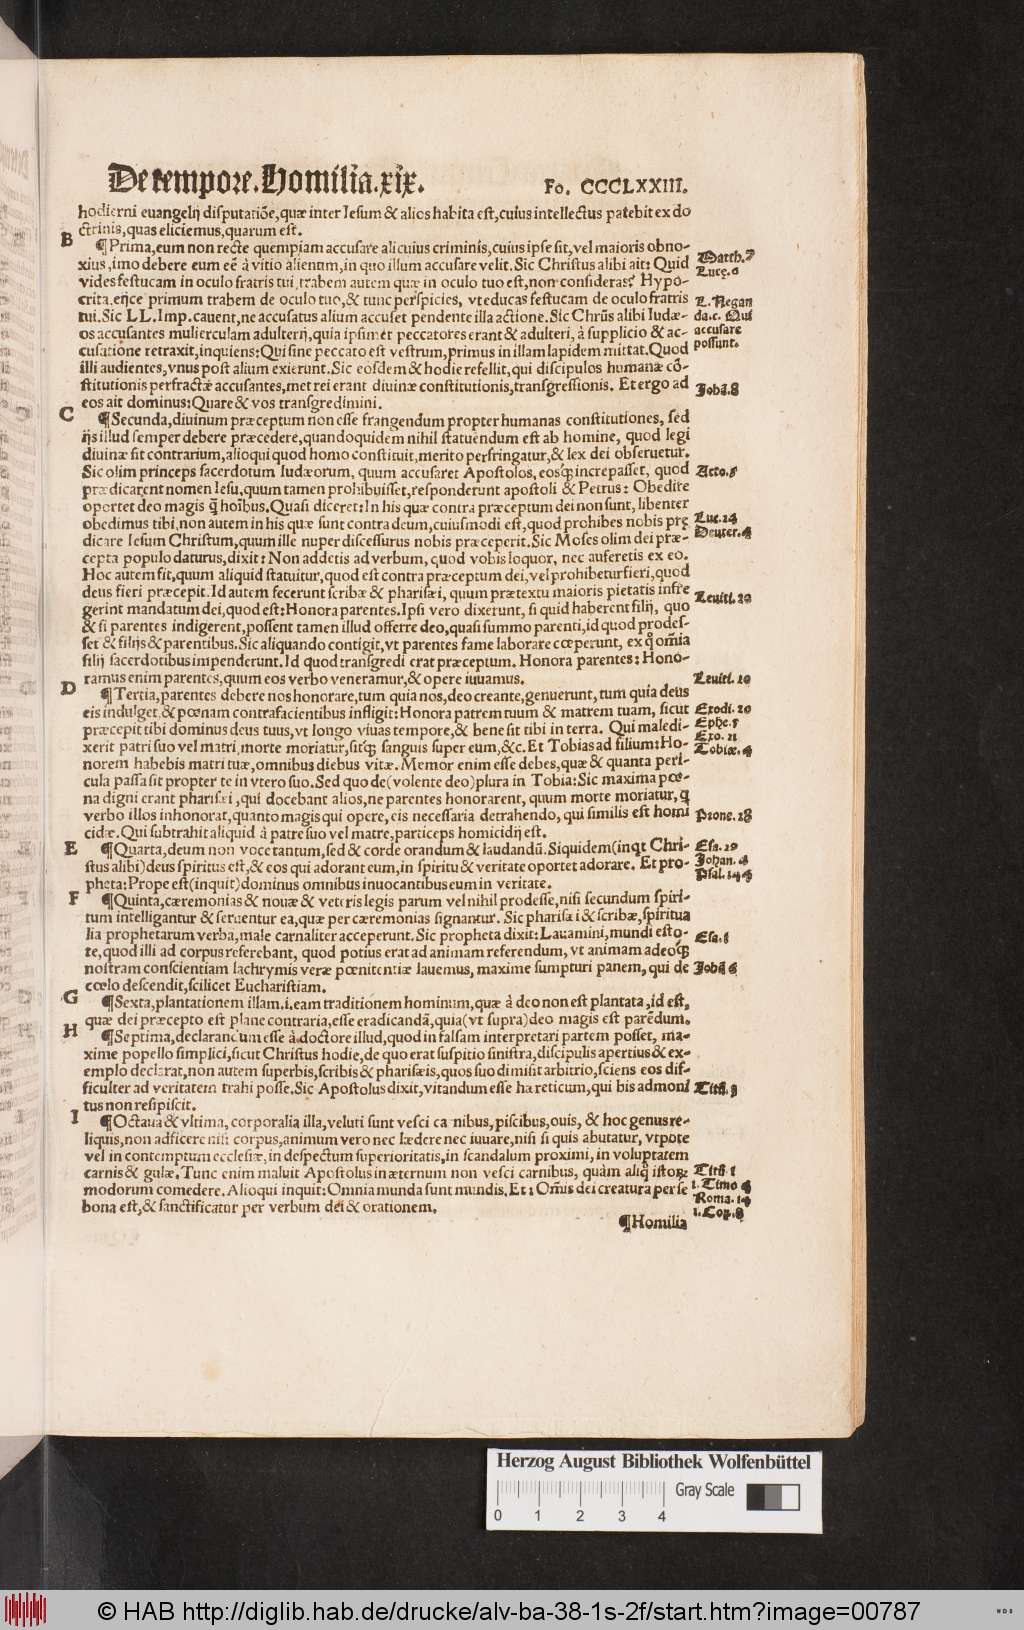 De tempore. Homilia. xix. Fo. CCCLXXIII.
hodierni euangelij disputatiõe, quæ inter Iesum & alios habita est, cuius intellectus patebit ex do
ctrinis, quas eliciemus, quarum est.
B
¶ Prima, eum non recte quempiam accusare alicuius criminis, cuius ipse sit, vel maioris obno-
xius, imo debere eum eẽ à vitio alienum, in quo illum accusare velit. Sic Christus alibi ait: Quid
Matth. 7
Luce. 6
vides festucam in oculo fratris tui, trabem autem quæ in oculo tuo est, non consideras? Hypo-
crita, eijce primum trabem de oculo tuo, & tunc perspicies, vt educas festucam de oculo fratris
L. Negan
tui. Sic LL. Imp. cauent, ne accusatus alium accuset pendente illa actione. Sic Chrũs alibi Iudæ-
da. c. Qui
os accusantes mulierculam adulterij, quia ipsimet peccatores erant & adulteri, à supplicio & ac-
accusare
cusatione retraxit, inquiens: Qui sine peccato est vestrum, primus in illam lapidem mittat. Quod
possunt.
illi audientes, vnus post alium exierunt. Sic eosdem & hodie refellit, qui discipulos humanæ cõ-
stitutionis perfractæ accusantes, met rei erant diuinæ constitutionis, transgressionis. Et ergo ad
Johã. 8
eos ait dominus: Quare & vos transgredimini.
C
¶ Secunda, diuinum præceptum non esse frangendum propter humanas constitutiones, sed
ijs illud semper debere præcedere, quandoquidem nihil statuendum est ab homine, quod legi
diuinæ sit contrarium, alioqui quod homo constituit, merito perfringatur, & lex dei obseruetur.
Sic olim princeps sacerdotum Iudæorum, quum accusaret Apostolos, eosq; increpasset, quod
Acto. 5
prædicarent nomen Iesu, quum tamen prohibuisset, responderunt apostoli & Petrus: Obedire
oportet deo magis q̃ hoĩbus. Quasi diceret: In his quæ contra præceptum dei non sunt, libenter
obedimus tibi, non autem in his quæ sunt contra deum, cuiusmodi est, quod prohibes nobis prę
Luc. 24
dicare Iesum Christum, quum ille nuper discessurus nobis præceperit. Sic Moses olim dei præ-
Deuter. 4
cepta populo daturus, dixit: Non addetis ad verbum, quod vobis loquor, nec auferetis ex eo.
Hoc autem fit, quum aliquid statuitur, quod est contra præceptum dei, vel prohibetur fieri, quod
deus fieri præcepit. Id autem fecerunt scribæ & pharisæi, quum prætextu maioris pietatis infre
Leuiti. 20
gerint mandatum dei, quod est: Honora parentes. Ipsi vero dixerunt, si quid haberent filij, quo
& si parentes indigerent, possent tamen illud offerre deo, quasi summo parenti, id quod prodes-
set & filijs & parentibus. Sic aliquando contigit, vt parentes fame laborare cœperunt, ex q̊ om̃ia
filij sacerdotibus impenderunt. Id quod transgredi erat præceptum. Honora parentes: Hono-
ramus enim parentes, quum eos verbo veneramur, & opere iuuamus.
Leuiti. 20
D
¶ Tertia, parentes debere nos honorare, tum quia nos, deo creante, genuerunt, tum quia deus
eis indulget, & pœnam contrafacientibus infligit: Honora patrem tuum & matrem tuam, sicut
Exodi. 20
præcepit tibi dominus deus tuus, vt longo viuas tempore, & bene sit tibi in terra. Qui maledi-
Ephe. 5
xerit patri suo vel matri, morte moriatur, sitq; sanguis super eum, &c. Et Tobias ad filium: Ho-
Exo. 21
Tobiæ. 4
norem habebis matri tuæ, omnibus diebus vitæ. Memor enim esse debes, quæ & quanta peri-
cula passa sit propter te in vtero suo. Sed quo de (volente deo) plura in Tobia: Sic maxima pœ-
na digni erant pharisæi, qui docebant alios, ne parentes honorarent, quum morte moriatur, q̃
verbo illos inhonorat, quanto magis qui opere, eis necessaria detrahendo, qui similis est homi
Proue. 28
cidæ. Qui subtrahit aliquid à patre suo vel matre, particeps homicidij est.
E
¶ Quarta, deum non voce tantum, sed & corde orandum & laudandũ. Siquidem (inqt Chri-
Esa. 29
stus alibi) deus spiritus est, & eos qui adorant eum, in spiritu & veritate oportet adorare. Et pro-
Johan. 4
pheta: Prope est (inquit) dominus omnibus inuocantibus eum in veritate.
Psal. 144
F
¶ Quinta, cæremonias & nouæ & veteris legis parum vel nihil prodesse, nisi secundum spiri-
tum intelligantur & seruentur ea, quæ per cæremonias signantur. Sic pharisæi & scribæ, spiritua
lia prophetarum verba, male carnaliter acceperunt. Sic propheta dixit: Lauamini, mundi esto-
Esa. 1
te, quod illi ad corpus referebant, quod potius erat ad animam referendum, vt animam adeoq;
nostram conscientiam lachrymis veræ pœnitentiæ lauemus, maxime sumpturi panem, qui de
Johã 6
cœlo descendit, scilicet Eucharistiam.
G
¶ Sexta, plantationem illam. i. eam traditionem hominum, quæ à deo non est plantata, id est,
quæ dei præcepto est plane contraria, esse eradicandã, quia (vt supra) deo magis est parẽdum.
H
¶ Septima, declarandum esse à doctore illud, quod in falsam interpretari partem posset, ma-
xime popello simplici, sicut Christus hodie, de quo erat suspitio sinistra, discipulis apertius & ex-
emplo declarat, non autem superbis, scribis & pharisæis, quos suo dimisit arbitrio, sciens eos dif-
ficulter ad veritatem trahi posse. Sic Apostolus dixit, vitandum esse hæreticum, qui bis admoni
Titũ. 3
tus non resipiscit.
I
¶ Octaua & vltima, corporalia illa, veluti sunt vesci carnibus, piscibus, ouis, & hoc genus re-
liquis, non adficere nisi corpus, animum vero nec lædere nec iuuare, nisi si quis abutatur, vtpote
vel in contemptum ecclesiæ, in despectum superioritatis, in scandalum proximi, in voluptatem
carnis & gulæ. Tunc enim maluit Apostolus in æternum non vesci carnibus, quàm aliq̃ istoꝝ
Titũ. 1
modorum comedere. Alioqui inquit: Omnia munda sunt mundis. Et: Om̃is dei creatura per se
1. Timo 4
Roma. 14
bona est, & sanctificatur per verbum dei & orationem.
1. Cor. 8
¶ Homilia
Herzog August Bibliothek Wolfenbüttel
Gray Scale
0 1 2 3 4
© HAB http://diglib.hab.de/drucke/alv-ba-38-1s-2f/start.htm?image=00787